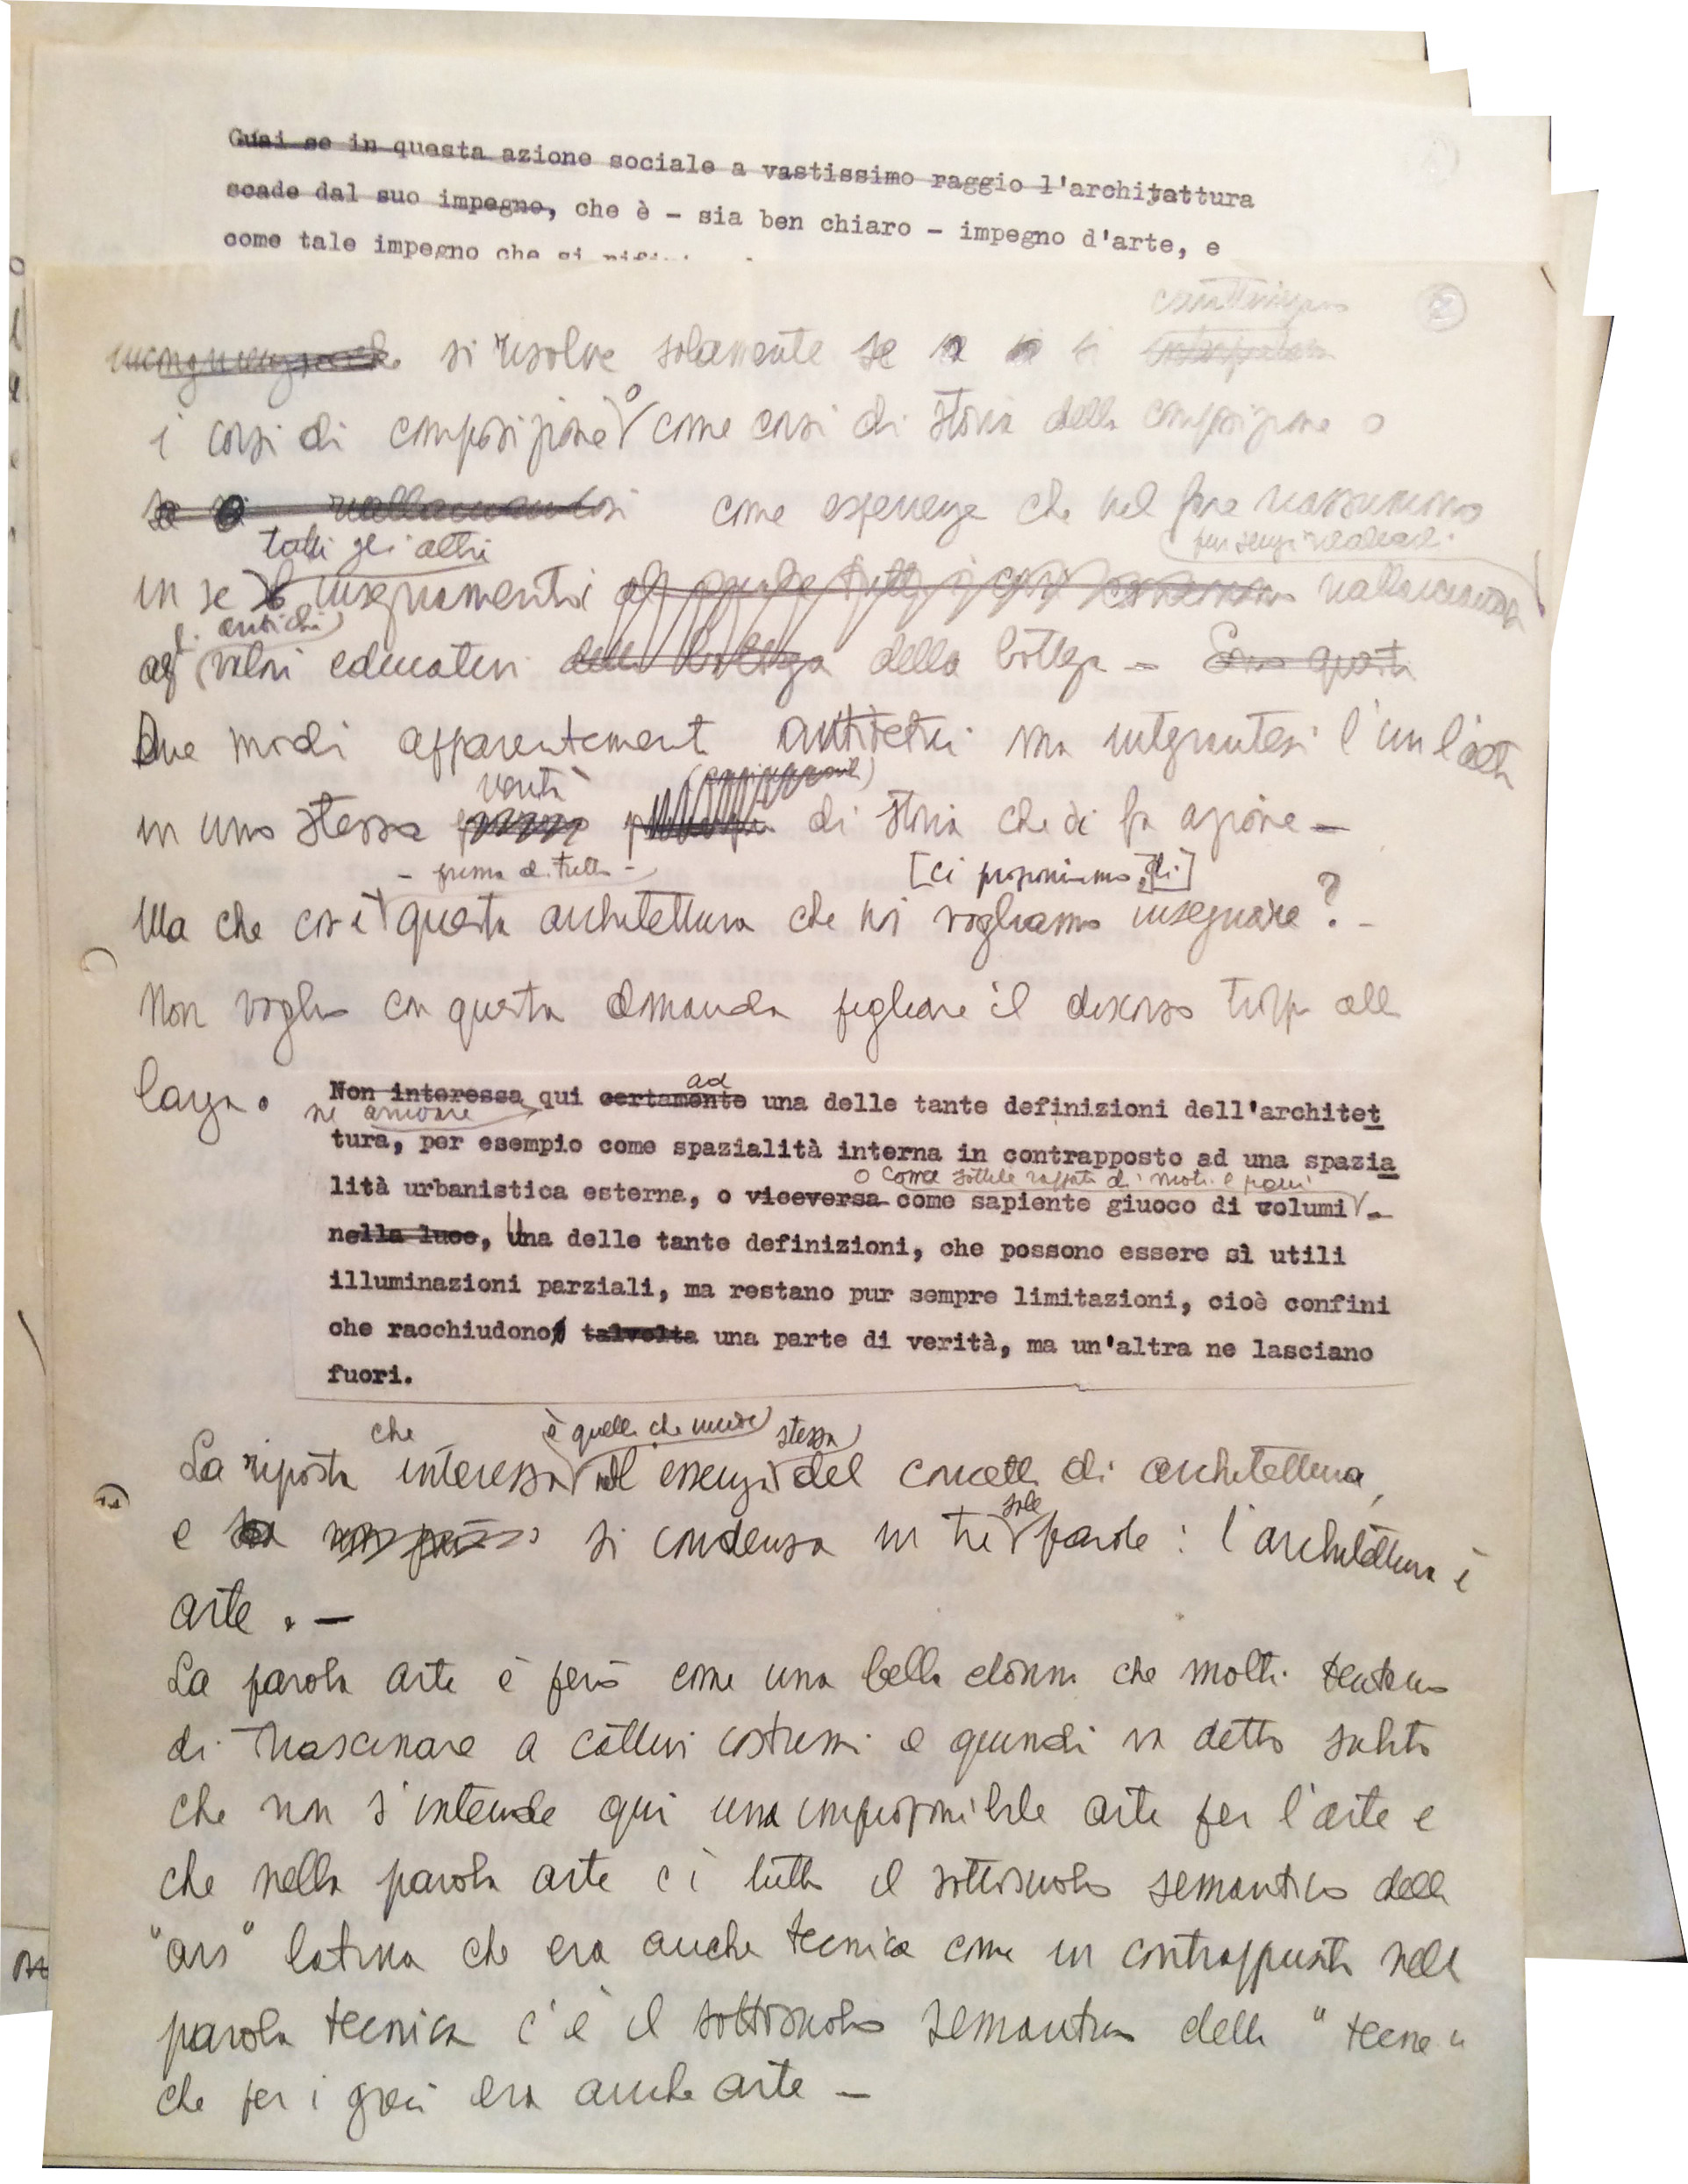 Guai se in questa azione sociale a vastissimo raggio l'architettura
scade dal suo impegno, che è - sia ben chiaro - impegno d'arte, e
come tale impegno che si
2
si risolve solamente se
i corsi di composizione o come corsi di storia della composizione o
riallacciandosi come esperienze che nel fare riassumono
tutti gli altri
pur senza ricalcarli
in se insegnamenti riallacciandosi
antichi
agli valori educativi della bottega della bottega - Sono questi
Due modi apparentement antitetici ma integrantesi l'un l'altro
verità
in una stessa di storia che si fa azione -
- prima di tutto - [ci proponiamo di]
Ma che cos'è questa architettura che noi vogliamo insegnare? -
Non voglio con questa domanda pigliare il discorso troppo alla
larga.
ad
Non interessa qui certamente una delle tante definizioni dell'architet
ne arrivare
tura, per esempio come spazialità interna in contrapposto ad una spazia
o come sottile rapporto di vuoti e pieni
lità urbanistica esterna, o viceversa come sapiente giuoco di volumi
nella luce, Una delle tante definizioni, che possono essere sì utili
illuminazioni parziali, ma restano pur sempre limitazioni, cioè confini
che racchiudono talvolta una parte di verità, ma un'altra ne lasciano
fuori.
che è quella che stessa
La risposta interessa all'essenza del concetto di architettura,
sole
e si condensa in tre parole: l'architettura è
arte. -
La parola arte è però come una bella donna che molti tentano
di trascinare a cattivi costumi e quindi va detto subito
che non s'intende qui una improponibile arte per l'arte e
che nella parola arte c'è tutto il sottosuolo semantico della
"ars" latina che era anche tecnica come in contrappunto nella
parola tecnica c'è il sottosuolo semantico della "tecne"
che per i greci era anche arte -